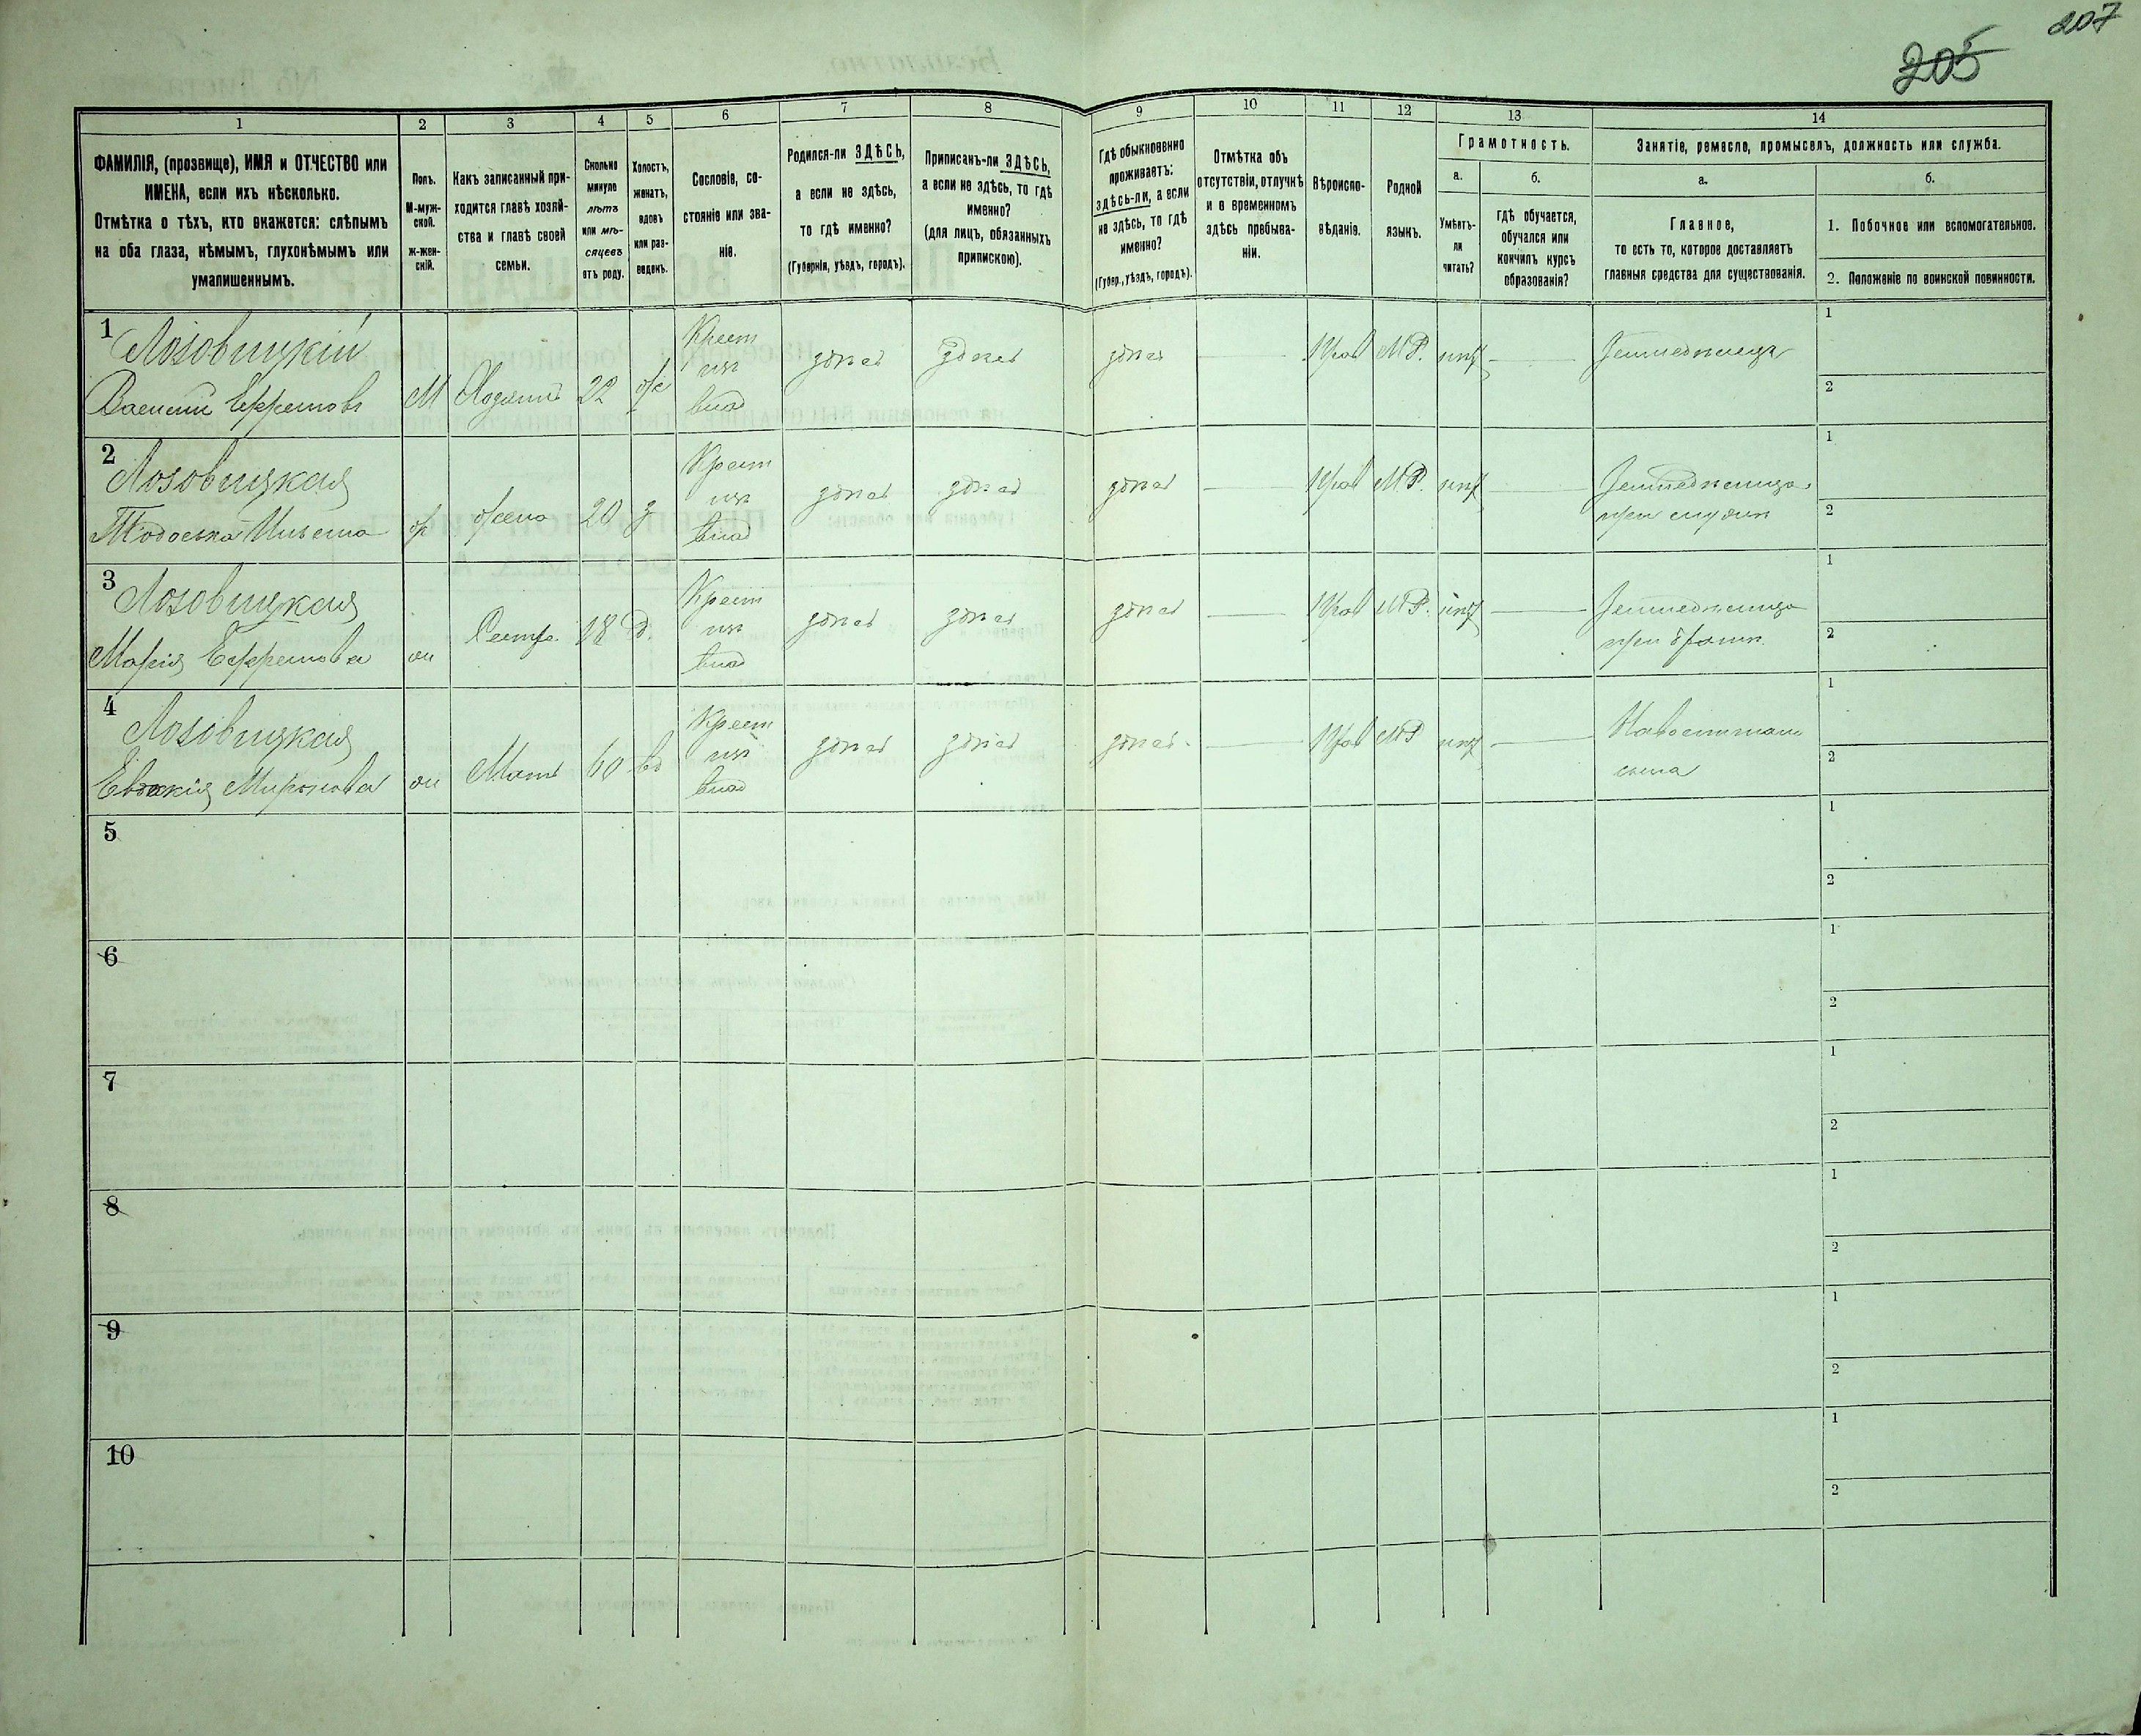 207
205
1
2
3
4
5
6
7
8
9
10
11
12
13
14
ФАМИЛІЯ, (прозвище), ИМЯ и ОТЧЕСТВО или
ИМЕНА, если ихъ нѣсколько.
Отмѣтка о тѣхъ, кто окажется: слѣпымъ
на оба глаза, нѣмымъ, глухонѣмымъ или
умалишеннымъ.
Полъ.
М-муж-
ской.
ж-жен-
скій.
Какъ записанный при-
ходится главѣ хозяй-
ства и главѣ своей
семьи.
Сколько
минуло
лѣтъ
или мѣ-
сяцевъ
отъ роду.
Холостъ,
женатъ,
вдовъ
или раз-
веденъ.
Сословіе, со-
стояніе или зва-
ніе.
Родился-ли ЗДѢСЬ,
а если не здѣсь,
то гдѣ именно?
(Губернія, уѣздъ, городъ).
Приписанъ-ли ЗДѢСЬ,
а если не здѣсь, то гдѣ
именно?
(для лицъ, обязанныхъ
припискою).
Гдѣ обыкновенно
проживаетъ:
здѣсь-ли, а если
не здѣсь, то гдѣ
именно?
(Губер., уѣздъ, городъ).
Отмѣтка объ
отсутствіи, отлучкѣ
и о временномъ
здѣсь пребыва-
ніи.
Вѣроиспо-
вѣданіе.
Родной
языкъ.
Грамотность.
а.
Умѣетъ-
ли
читать?
б.
гдѣ обучается,
обучался или
кончилъ курсъ
образованія?
Занятіе, ремесло, промыселъ, должность или служба.
а.
Главное,
то есть то, которое доставляетъ
главныя средства для существованія.
б.
1. Побочное или вспомогательное.
2. Положеніе по воинской повинности.
1
Лозовицкій
Василій Ефремовъ
М
Хозяинъ
22
ж
Крест
изъ
влад
здѣсь
здѣсь
здѣсь
Прав
М.Р.
нѣт
Земледѣлецъ
1
2
2
Лозовицкая
ж
жена
20
з
Крест
изъ
влад
здѣсь
здѣсь
здѣсь
Прав
М.Р.
нѣт
Земледѣлица
при мужѣ
1
2
3
Лозовицкая
Марія Ефремова
ж
Сестра
18
д.
Крест
изъ
влад
здѣсь
здѣсь
здѣсь
Прав
М.Р.
нѣт
Земледѣлица
при братѣ
1
2
4
Лозовицкая
Евдокія Миронова
ж
Мать
60
вд
Крест
изъ
влад
здѣсь
здѣсь
здѣсь
Прав
М.Р.
нѣт
сына
1
2
5
1
2
6
1
2
7
1
2
8
1
2
9
1
2
10
1
2